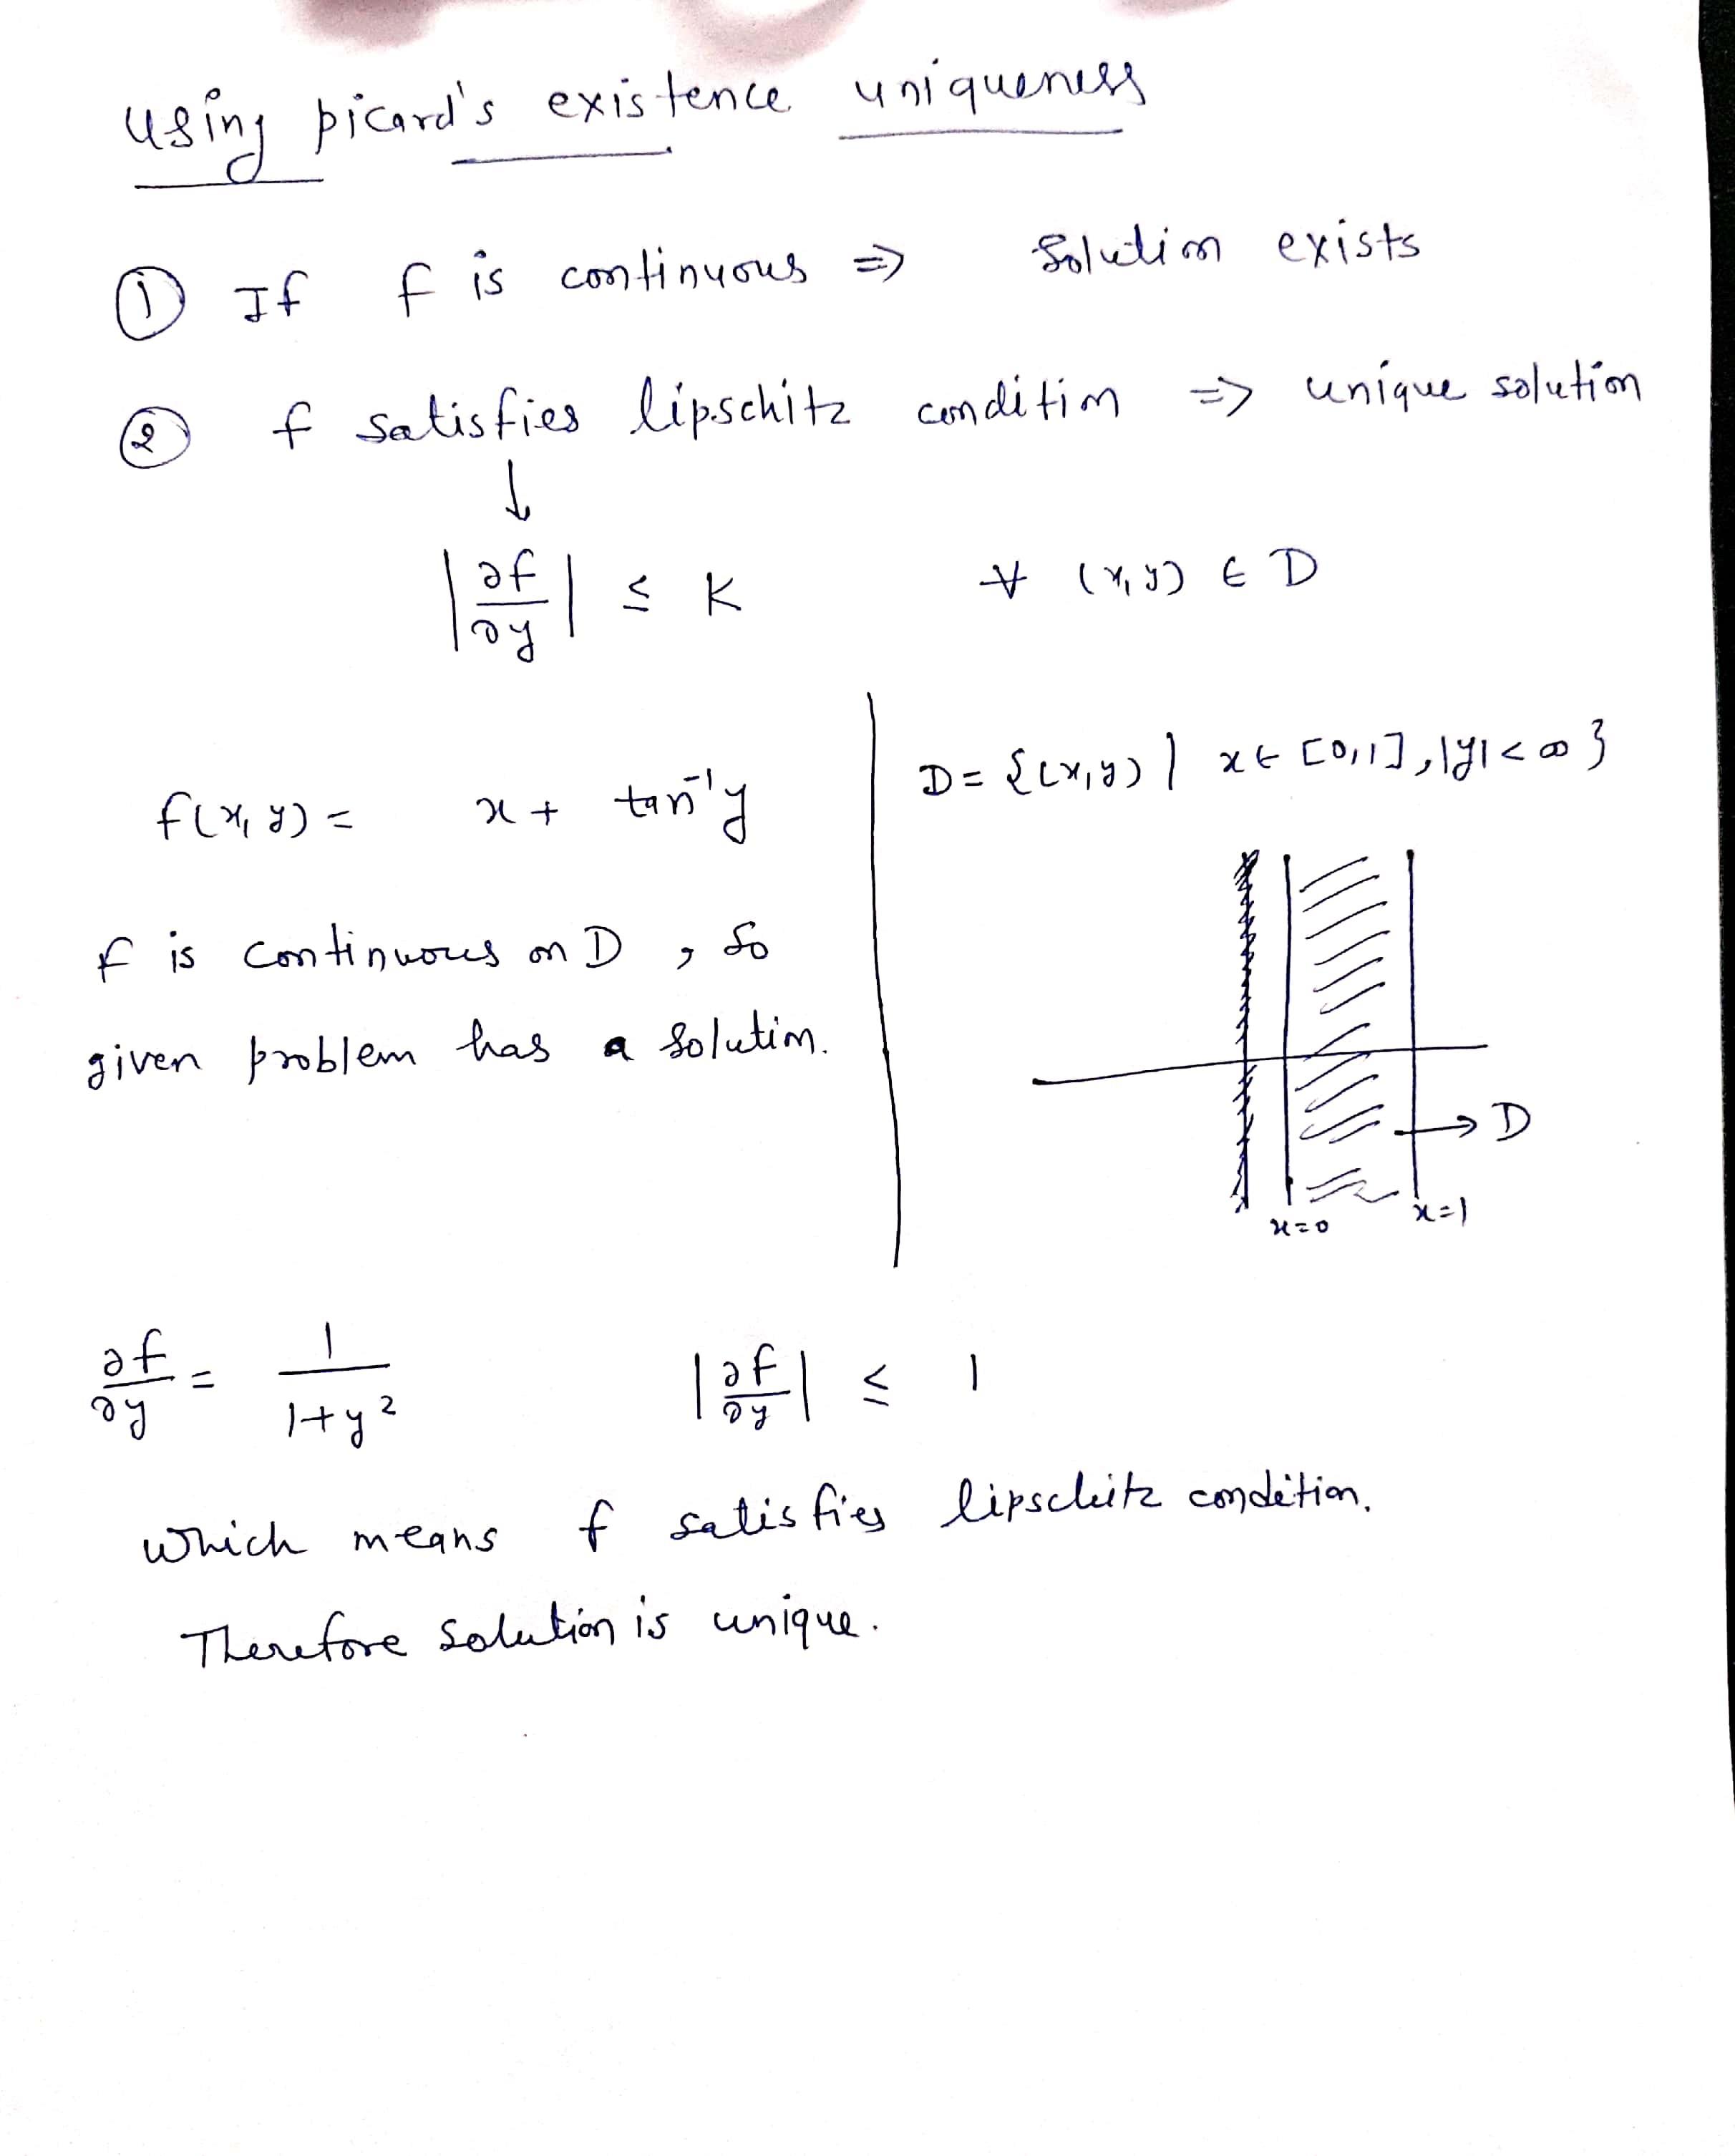 Using picard's existence uniqueness
① If f is continuous ⇒ Solution exists
② f satisfies lipschitz condition ⇒ unique solution
↓
|∂f/∂y| ≤ K ∀ (x, y) ∈ D
f(x, y) = x + tan⁻¹y
f is continuous on D, so
given problem has a solution.
D = {(x, y) | x ∈ [0,1], |y| < ∞}
→ D
x=0 x=1
∂f/∂y = 1/(1+y²) |∂f/∂y| ≤ 1
which means f satisfies lipschitz condition.
Therefore solution is unique.